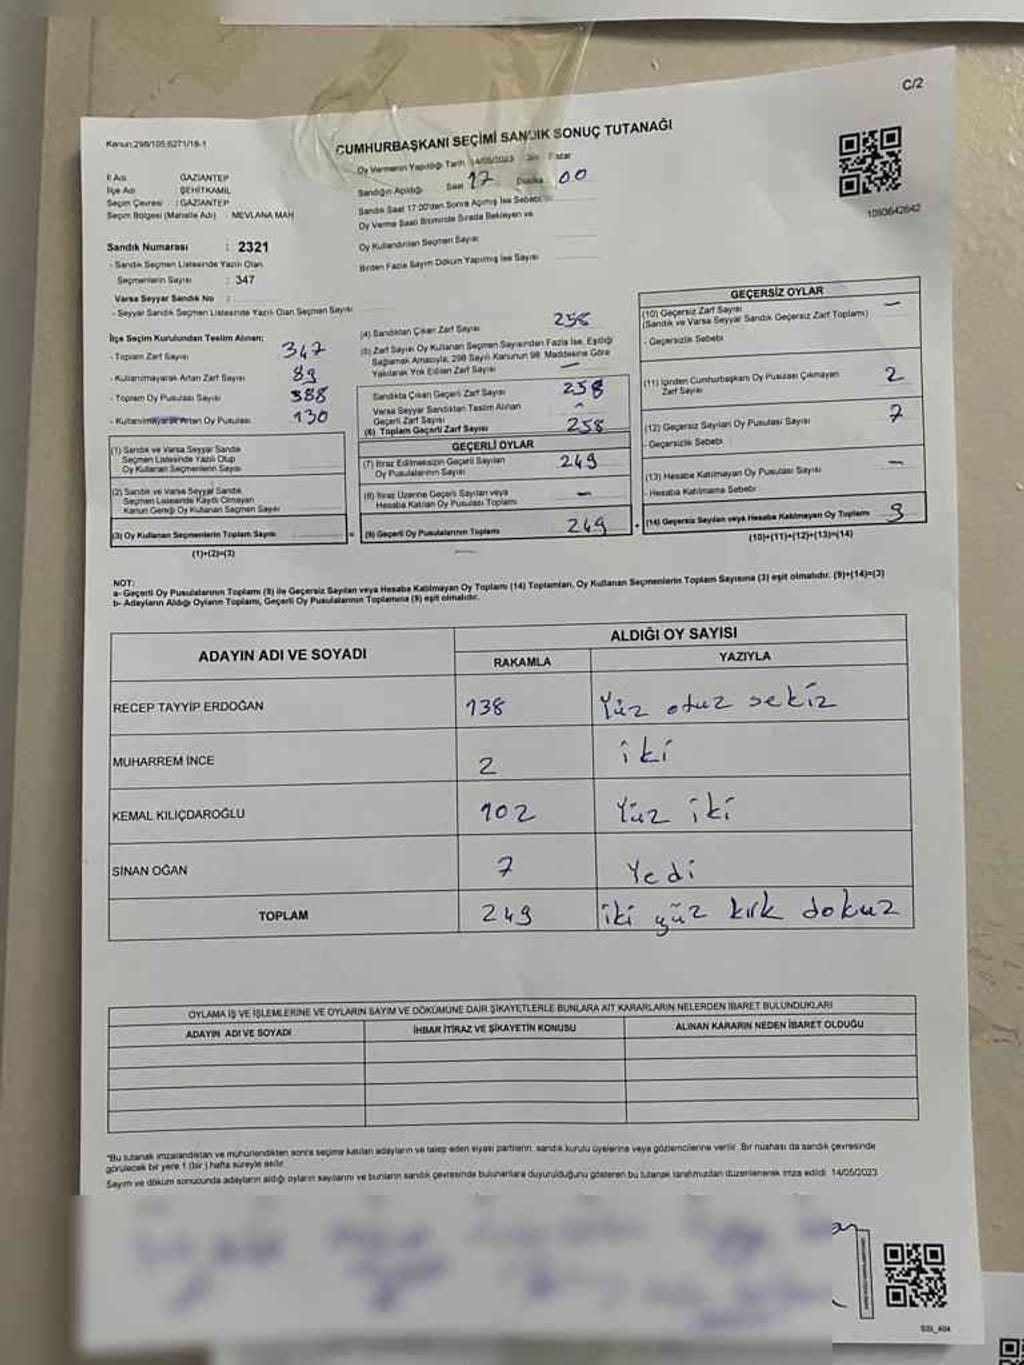 C/2
Kanun:298/105,6271/18-1
CUMHURBAŞKANI SEÇİMİ SANDIK SONUÇ TUTANAĞI
Oy Vermenin Yapıldığı Tarih 14/05/2023 Pazar
Sandığın Açıldığı Saat 17 Dakika 00
Sandık Saat 17:00'den Sonra Açılmış İse Sebebi
Oy Verme Saati Bitiminde Sırada Bekleyen ve
Oy Kullandırılan Seçmen Sayısı
Birden Fazla Sayım Döküm Yapılmış İse Sayısı
İl Adı : GAZİANTEP
İlçe Adı : ŞEHİTKAMİL
Seçim Çevresi : GAZİANTEP
Seçim Bölgesi (Mahalle Adı) : MEVLANA MAH
1093642642
Sandık Numarası : 2321
- Sandık Seçmen Listesinde Yazılı Olan
Seçmenlerin Sayısı : 347
Varsa Seyyar Sandık No :
- Seyyar Sandık Seçmen Listesinde Yazılı Olan Seçmen Sayısı
İlçe Seçim Kurulundan Teslim Alınan;
- Toplam Zarf Sayısı 347
- Kullanılmayarak Artan Zarf Sayısı 89
- Toplam Oy Pusulası Sayısı 388
- Kullanılmayarak Artan Oy Pusulası 130
(1) Sandık ve Varsa Seyyar Sandık
Seçmen Listesinde Yazılı Olup
Oy Kullanan Seçmenlerin Sayısı
(2) Sandık ve Varsa Seyyar Sandık
Seçmen Listesinde Kaydı Olmayan
Kanun Gereği Oy Kullanan Seçmen Sayısı
(3) Oy Kullanan Seçmenlerin Toplam Sayısı
(1)+(2)=(3)
(4) Sandıktan Çıkan Zarf Sayısı 258
(5) Zarf Sayısı Oy Kullanan Seçmen Sayısından Fazla İse, Eşitliği
Sağlamak Amacıyla, 298 Sayılı Kanunun 98. Maddesine Göre
Yakılarak Yok Edilen Zarf Sayısı —
Sandıkta Çıkan Geçerli Zarf Sayısı 258
Varsa Seyyar Sandıktan Teslim Alınan
Geçerli Zarf Sayısı
(6) Toplam Geçerli Zarf Sayısı 258
GEÇERLİ OYLAR
(7) İtiraz Edilmeksizin Geçerli Sayılan
Oy Pusulalarının Sayısı 249
(8) İtiraz Üzerine Geçerli Sayılan veya
Hesaba Katılan Oy Pusulası Toplamı —
(9) Geçerli Oy Pusulalarının Toplamı 249
GEÇERSİZ OYLAR
(10) Geçersiz Zarf Sayısı —
(Sandık ve Varsa Seyyar Sandık Geçersiz Zarf Toplamı)
- Geçersizlik Sebebi
(11) İçinden Cumhurbaşkanı Oy Pusulası Çıkmayan
Zarf Sayısı 2
(12) Geçersiz Sayılan Oy Pusulası Sayısı 7
- Geçersizlik Sebebi
(13) Hesaba Katılmayan Oy Pusulası Sayısı —
- Hesaba Katılmama Sebebi
(14) Geçersiz Sayılan veya Hesaba Katılmayan Oy Toplamı 9
(10)+(11)+(12)+(13)=(14)
NOT:
a- Geçerli Oy Pusulalarının Toplamı (9) ile Geçersiz Sayılan veya Hesaba Katılmayan Oy Toplamı (14) Toplamları, Oy Kullanan Seçmenlerin Toplam Sayısına (3) eşit olmalıdır. (9)+(14)=(3)
b- Adayların Aldığı Oyların Toplamı, Geçerli Oy Pusulalarının Toplamına (9) eşit olmalıdır.
ADAYIN ADI VE SOYADI
ALDIĞI OY SAYISI
RAKAMLA YAZIYLA
RECEP TAYYİP ERDOĞAN 138 Yüz otuz sekiz
MUHARREM İNCE 2 iki
KEMAL KILIÇDAROĞLU 102 Yüz iki
SİNAN OĞAN 7 Yedi
TOPLAM 249 iki yüz kırk dokuz
OYLAMA İŞ VE İŞLEMLERİNE VE OYLARIN SAYIM VE DÖKÜMÜNE DAİR ŞİKAYETLERLE BUNLARA AİT KARARLARIN NELERDEN İBARET BULUNDUKLARI
ADAYIN ADI VE SOYADI İHBAR İTİRAZ VE ŞİKAYETİN KONUSU ALINAN KARARIN NEDEN İBARET OLDUĞU
*Bu tutanak imzalandıktan ve mühürlendikten sonra seçime katılan adayların ve talep eden siyasi partilerin, sandık kurulu üyelerine veya gözlemcilerine verilir. Bir nüshası da sandık çevresinde
görülecek bir yere 1 (bir) hafta süreyle asılır.
Sayım ve döküm sonucunda adayların aldığı oyların sayılarını ve bunların sandık çevresinde bulunanlara duyurulduğunu gösteren bu tutanak tarafımızdan düzenlenerek imza edildi. 14/05/2023